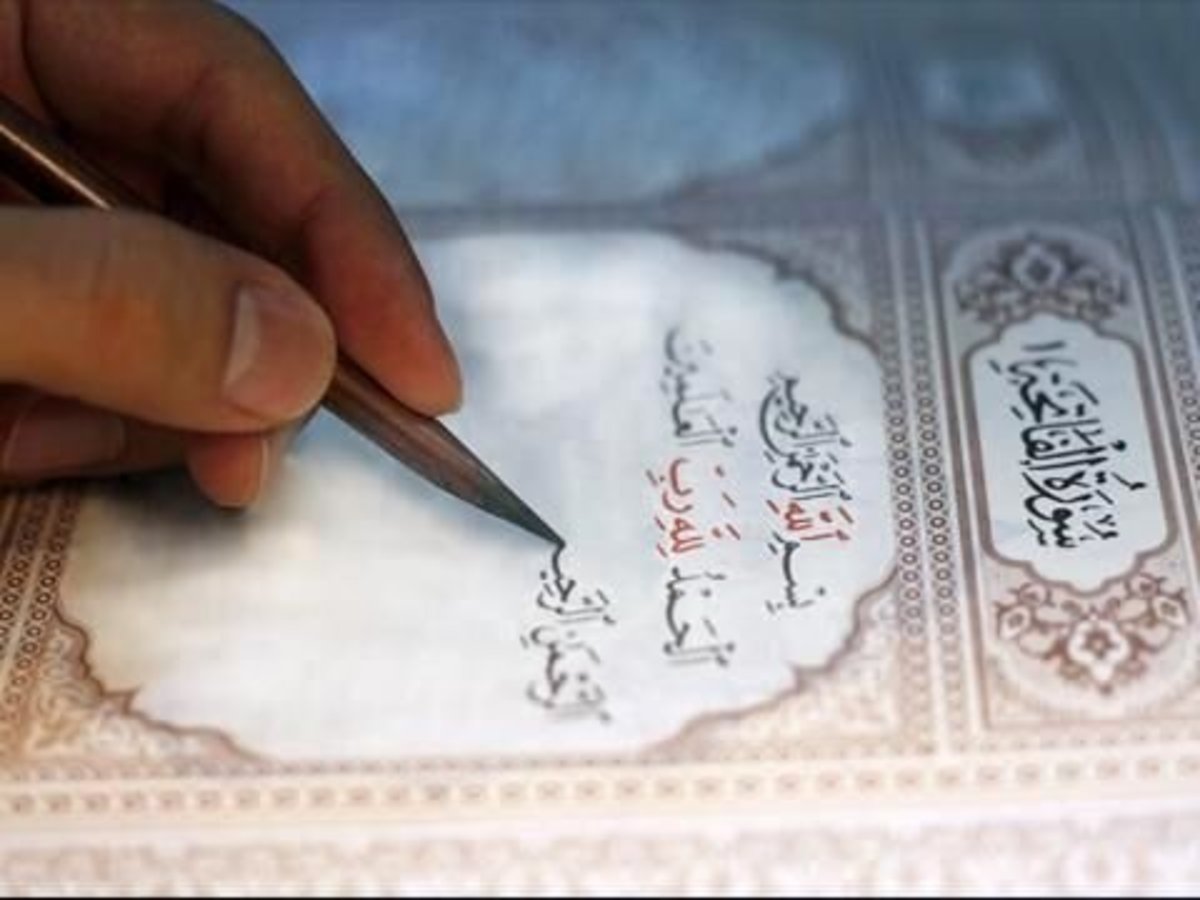 سُورَةُ الْفَاتِحَةِ
بِسْمِ اللَّهِ الرَّحْمَٰنِ الرَّحِيمِ
الْحَمْدُ لِلَّهِ رَبِّ الْعَالَمِينَ
الرَّحْمَٰنِ الرَّحِيمِ